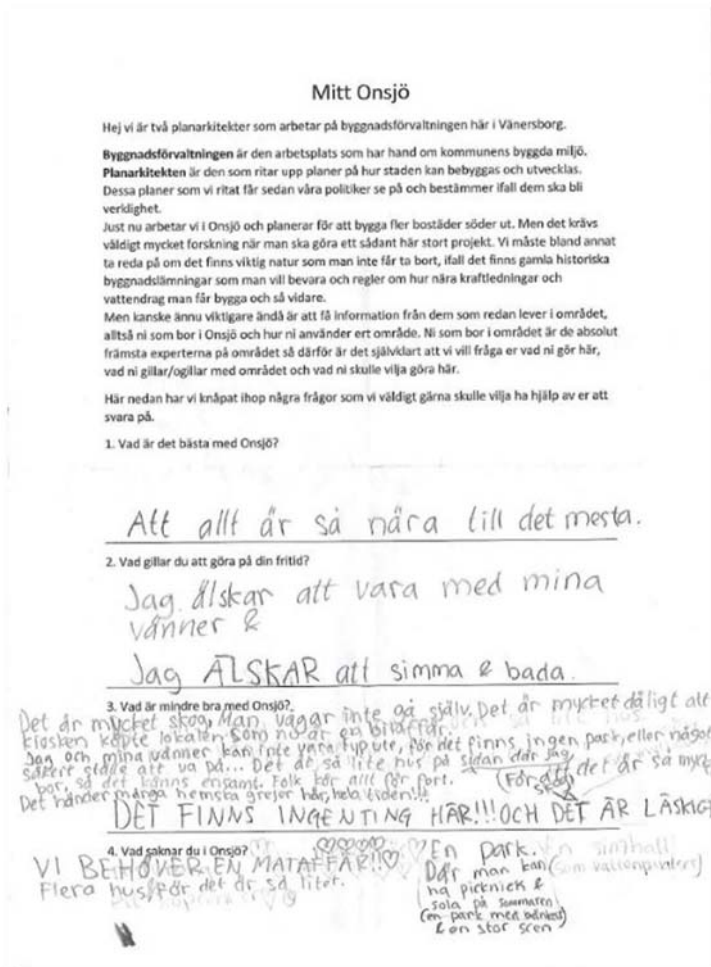 Mitt Onsjö
Hej vi är två planarkitekter som arbetar på byggnadsförvaltningen här i Vänersborg.
Byggnadsförvaltningen är den arbetsplats som har hand om kommunens byggda miljö.
Planarkitekten är den som ritar upp planer på hur staden kan bebyggas och utvecklas.
Dessa planer som vi ritat får sedan våra politiker se på och bestämmer ifall dem ska bli
verklighet.
Just nu arbetar vi i Onsjö och planerar för att bygga fler bostäder söder ut. Men det krävs
väldigt mycket forskning när man ska göra ett sådant här stort projekt. Vi måste bland annat
ta reda på om det finns viktig natur som man inte får ta bort, ifall det finns gamla historiska
byggnadslämningar som man vill bevara och regler om hur nära kraftledningar och
vattendrag man får bygga och så vidare.
Men kanske ännu viktigare ändå är att få information från dem som redan lever i området,
alltså ni som bor i Onsjö och hur ni använder ert område. Ni som bor i området är de absolut
främsta experterna på området så därför är det självklart att vi vill fråga er vad ni gör här,
vad ni gillar/ogillar med området och vad ni skulle vilja göra här.
Här nedan har vi knåpat ihop några frågor som vi väldigt gärna skulle vilja ha hjälp av er att
svara på.
1. Vad är det bästa med Onsjö?
Att allt är så nära till det mesta.
2. Vad gillar du att göra på din fritid?
Jag älskar att vara med mina
vänner &
Jag ÄLSKAR att simma & bada.
3. Vad är mindre bra med Onsjö?
Det är mycket skog, Man vågar inte gå själv. Det är mycket dåligt att
kiosken köpte lokalen som nu är en bilaffär.
Jag och mina vänner kan inte vara typ ute, för det finns ingen park, eller något
säkert ställe att va på... Det är så lite hus på sidan där jag
bor, så det känns ensamt. Folk kör allt för fort. (För det är så myc
skog)
Det händer många hemska grejer här, hela tiden!!!
DET FINNS INGENTING HÄR!!! OCH DET ÄR LÄSKIG
4. Vad saknar du i Onsjö?
VI BEHÖVER EN MATAFFÄR!!♡
Flera hus, för det är så litet.
En park.
Där man kan
ha picknick &
sola på sommaren
(en park med bänkar)
& en stor scen
En simhall
(som vattenpalatset)